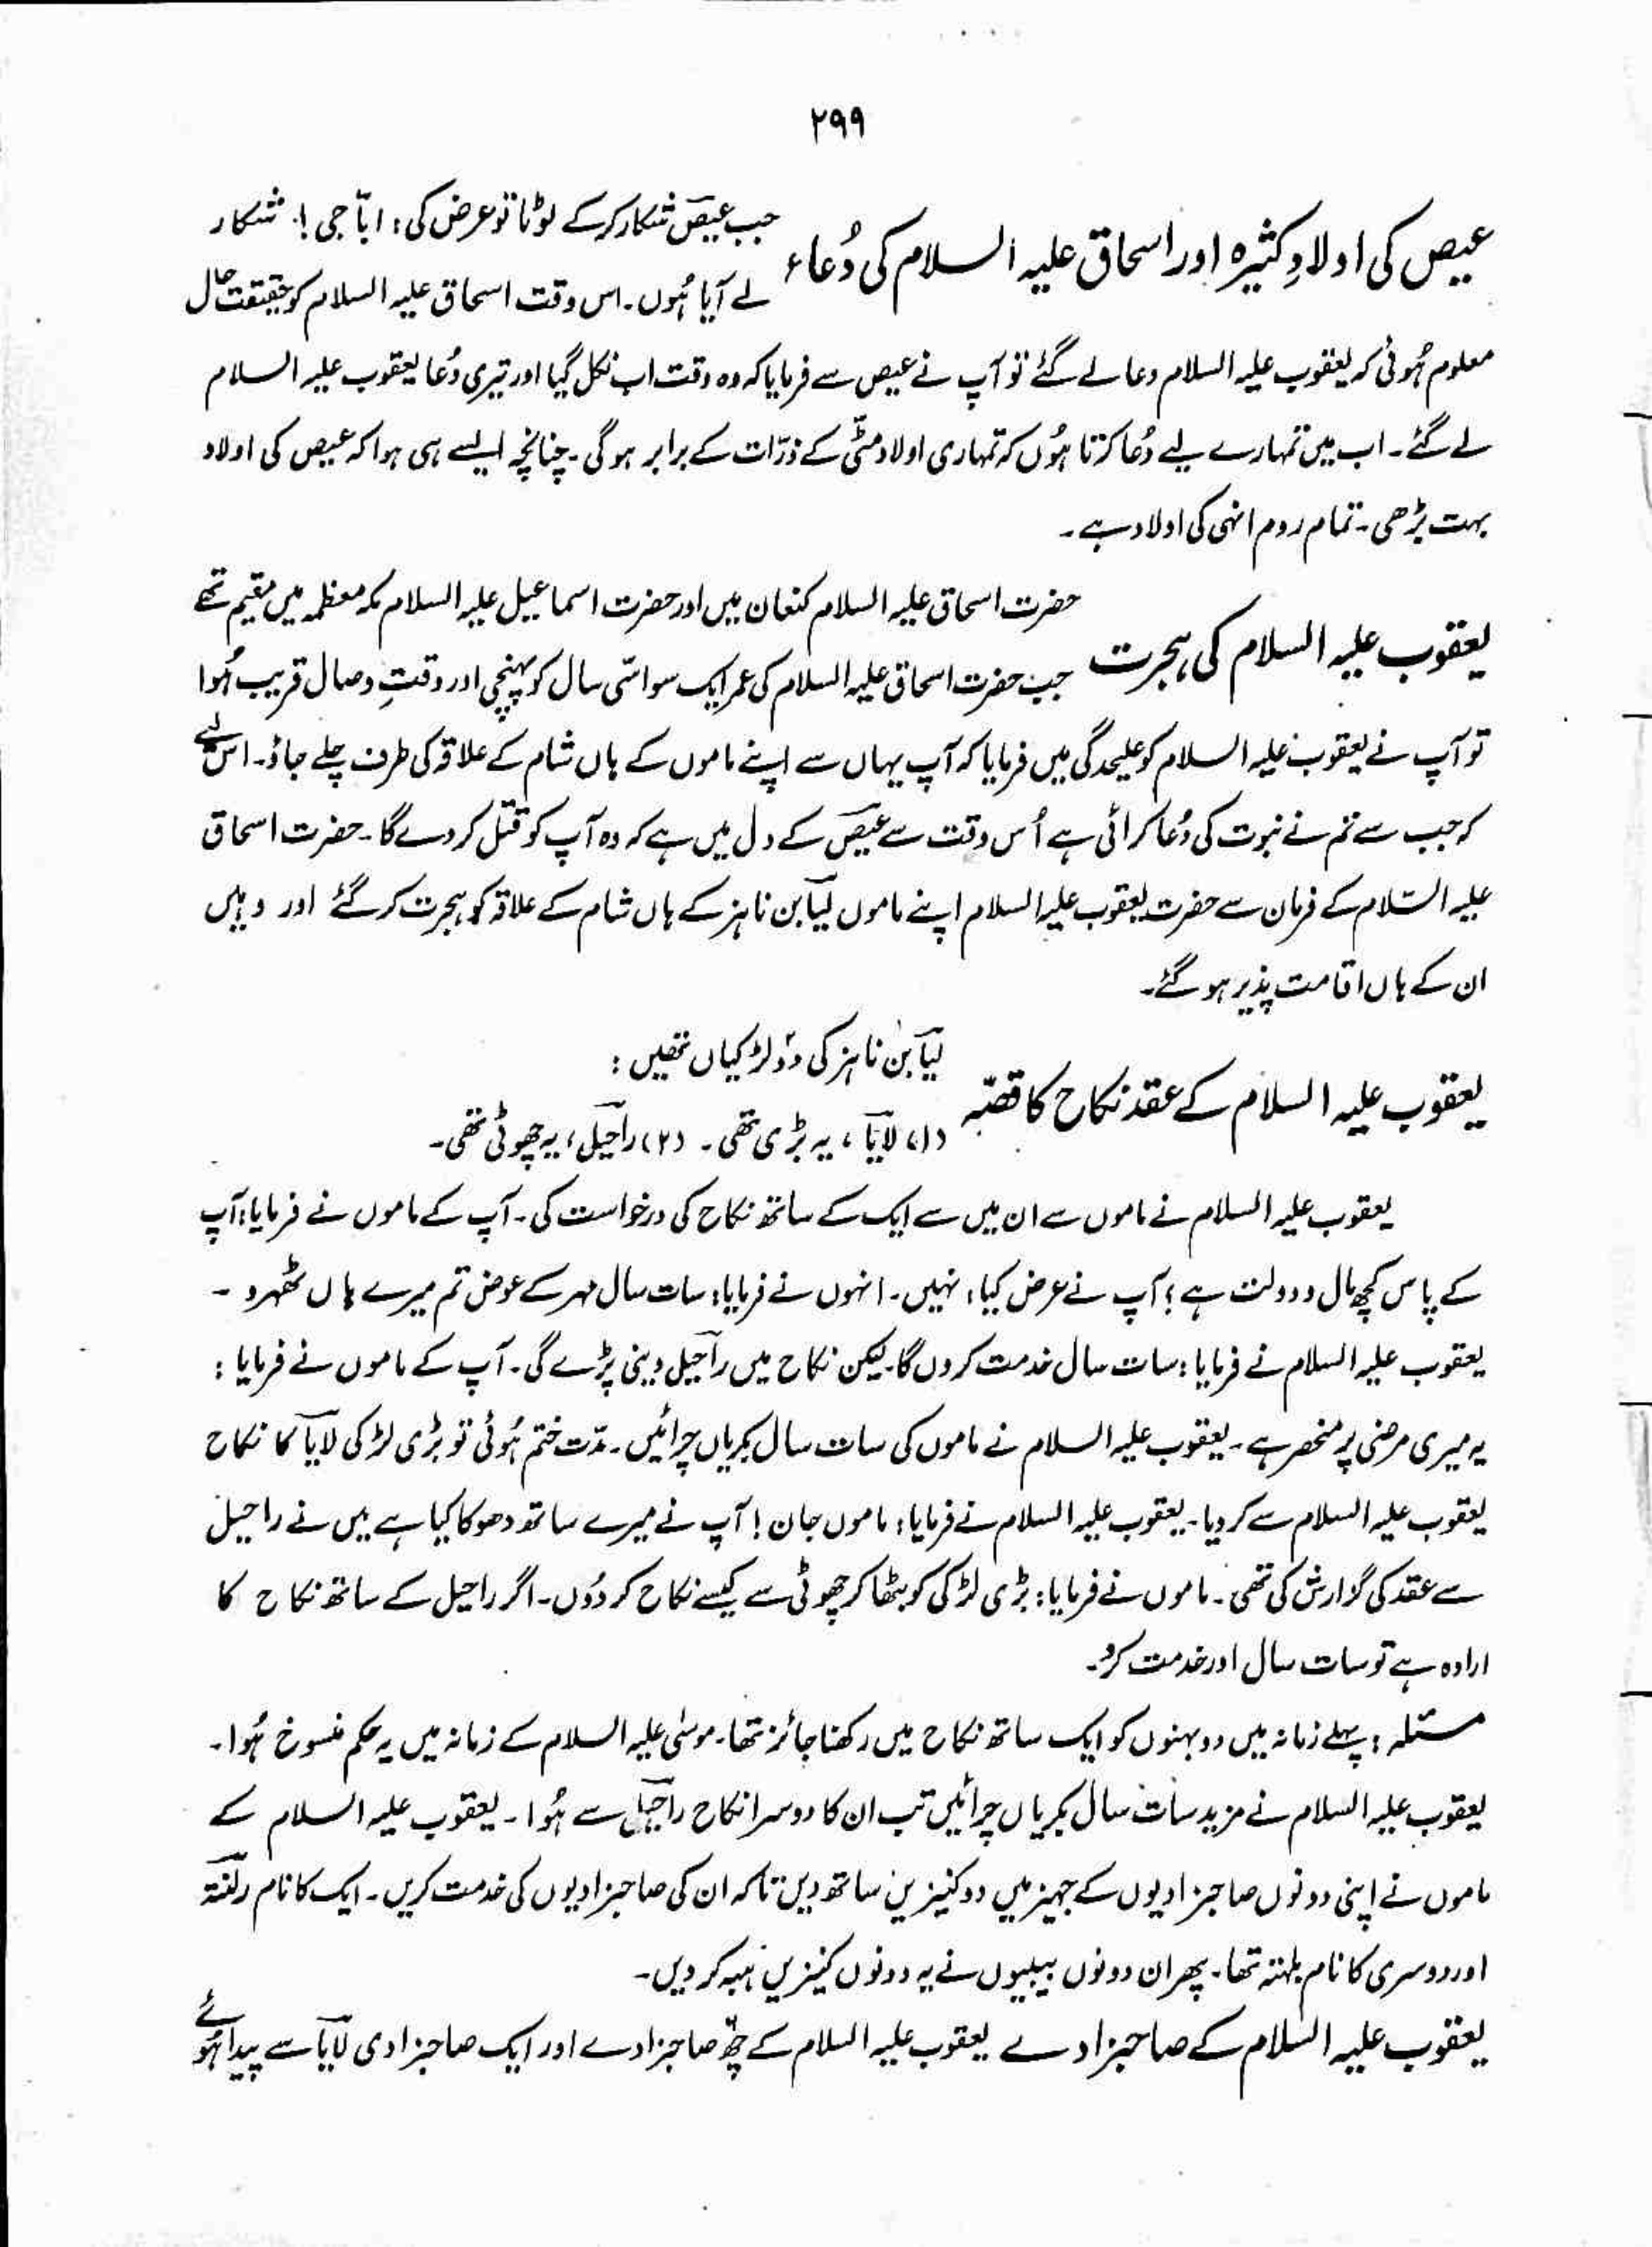 ۲۹۹
عیص کی اولادِ کثیرہ اور اسحاق علیہ السلام کی دُعاء
جب عیص شکار کرکے لوٹا تو عرض کی: ابّا جی! شکار
لے آیا ہُوں۔ اس وقت اسحاق علیہ السلام کو حقیقت حال
معلوم ہُوئی کہ یعقوب علیہ السلام دعا لے گئے تو آپ نے عیص سے فرمایا کہ وہ وقت اب نکل گیا اور تیری دُعا یعقوب علیہ السلام
لے گئے۔ اب میں تمہارے لیے دُعا کرتا ہُوں کہ تمہاری اولاد مٹّی کے ذرّات کے برابر ہوگی۔ چنانچہ ایسے ہی ہوا کہ عیص کی اولاد
بہت بڑھی۔ تمام روم انہی کی اولاد ہے۔
یعقوب علیہ السلام کی ہجرت
حضرت اسحاق علیہ السلام کنعان میں اور حضرت اسماعیل علیہ السلام مکہ معظمہ میں مقیم تھے
جب حضرت اسحاق علیہ السلام کی عمر ایک سو اسّی سال کو پہنچی اور وقتِ وصال قریب ہُوا
تو آپ نے یعقوب علیہ السلام کو علیحدگی میں فرمایا کہ آپ یہاں سے اپنے ماموں کے ہاں شام کے علاقہ کی طرف چلے جاؤ۔ اس لیے
کہ جب سے تم نے نبوت کی دُعا کرائی ہے اُس وقت سے عیص کے دل میں ہے کہ وہ آپ کو قتل کر دے گا۔ حضرت اسحاق
علیہ السّلام کے فرمان سے حضرت یعقوب علیہ السلام اپنے ماموں لیّا بن ناہز کے ہاں شام کے علاقہ کو ہجرت کر گئے اور وہیں
ان کے ہاں اقامت پذیر ہو گئے۔
یعقوب علیہ السلام کے عقد نکاح کا قصّہ
لیّا بن ناہز کی دو لڑکیاں تھیں:
(۱) لایّا، یہ بڑی تھی۔ (۲) راحیل، یہ چھوٹی تھی۔
یعقوب علیہ السلام نے ماموں سے ان میں سے ایک کے ساتھ نکاح کی درخواست کی۔ آپ کے ماموں نے فرمایا: آپ
کے پاس کچھ مال و دولت ہے؟ آپ نے عرض کیا: نہیں۔ انہوں نے فرمایا: سات سال مہر کے عوض تم میرے ہاں ٹھہرو۔
یعقوب علیہ السلام نے فرمایا: سات سال خدمت کروں گا۔ لیکن نکاح میں راحیل دینی پڑے گی۔ آپ کے ماموں نے فرمایا:
یہ میری مرضی پر منحصر ہے۔ یعقوب علیہ السلام نے ماموں کی سات سال بکریاں چرائیں۔ مدّت ختم ہُوئی تو بڑی لڑکی لایّا کا نکاح
یعقوب علیہ السلام سے کر دیا۔ یعقوب علیہ السلام نے فرمایا: ماموں جان! آپ نے میرے ساتھ دھوکا کیا ہے میں نے راحیل
سے عقد کی گزارش کی تھی۔ ماموں نے فرمایا: بڑی لڑکی کو بٹھا کر چھوٹی سے کیسے نکاح کر دُوں۔ اگر راحیل کے ساتھ نکاح کا
ارادہ ہے تو سات سال اور خدمت کرو۔
مسئلہ: پہلے زمانہ میں دو بہنوں کو ایک ساتھ نکاح میں رکھنا جائز تھا۔ موسٰی علیہ السلام کے زمانہ میں یہ حکم منسوخ ہُوا۔
یعقوب علیہ السلام نے مزید سات سال بکریاں چرائیں تب ان کا دوسرا نکاح راحیل سے ہُوا۔ یعقوب علیہ السلام کے
ماموں نے اپنی دونوں صاحبزادیوں کے جہیز میں دو کنیزیں ساتھ دیں تاکہ ان کی صاحبزادیوں کی خدمت کریں۔ ایک کا نام رلفتہ
اور دوسری کا نام بلہتہ تھا۔ پھر ان دونوں بیبیوں نے یہ دونوں کنیزیں ہبہ کر دیں۔
یعقوب علیہ السّلام کے صاحبزادے یعقوب علیہ السلام کے چھ صاحبزادے اور ایک صاحبزادی لایّا سے پیدا ہُوئے